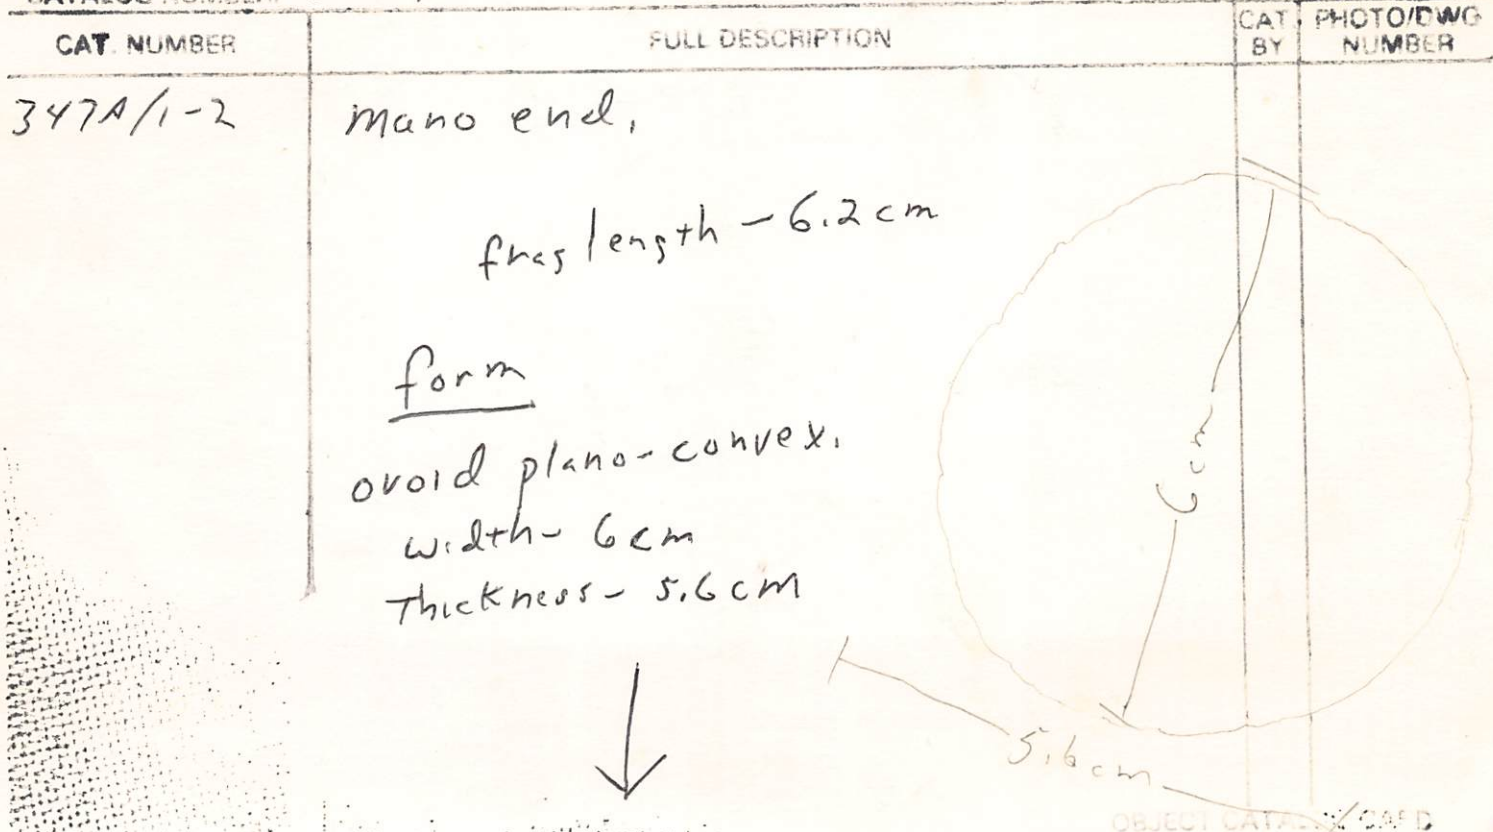 CATALOG NUMBER
CAT. NUMBER
FULL DESCRIPTION
CAT. BY
PHOTO/DWG NUMBER
347A/1-2
mano end,
frag length - 6.2 cm
form
ovoid plano-convex.
width - 6 cm
Thickness - 5.6 cm
6 cm
5.6 cm
OBJECT CATALOG CARD